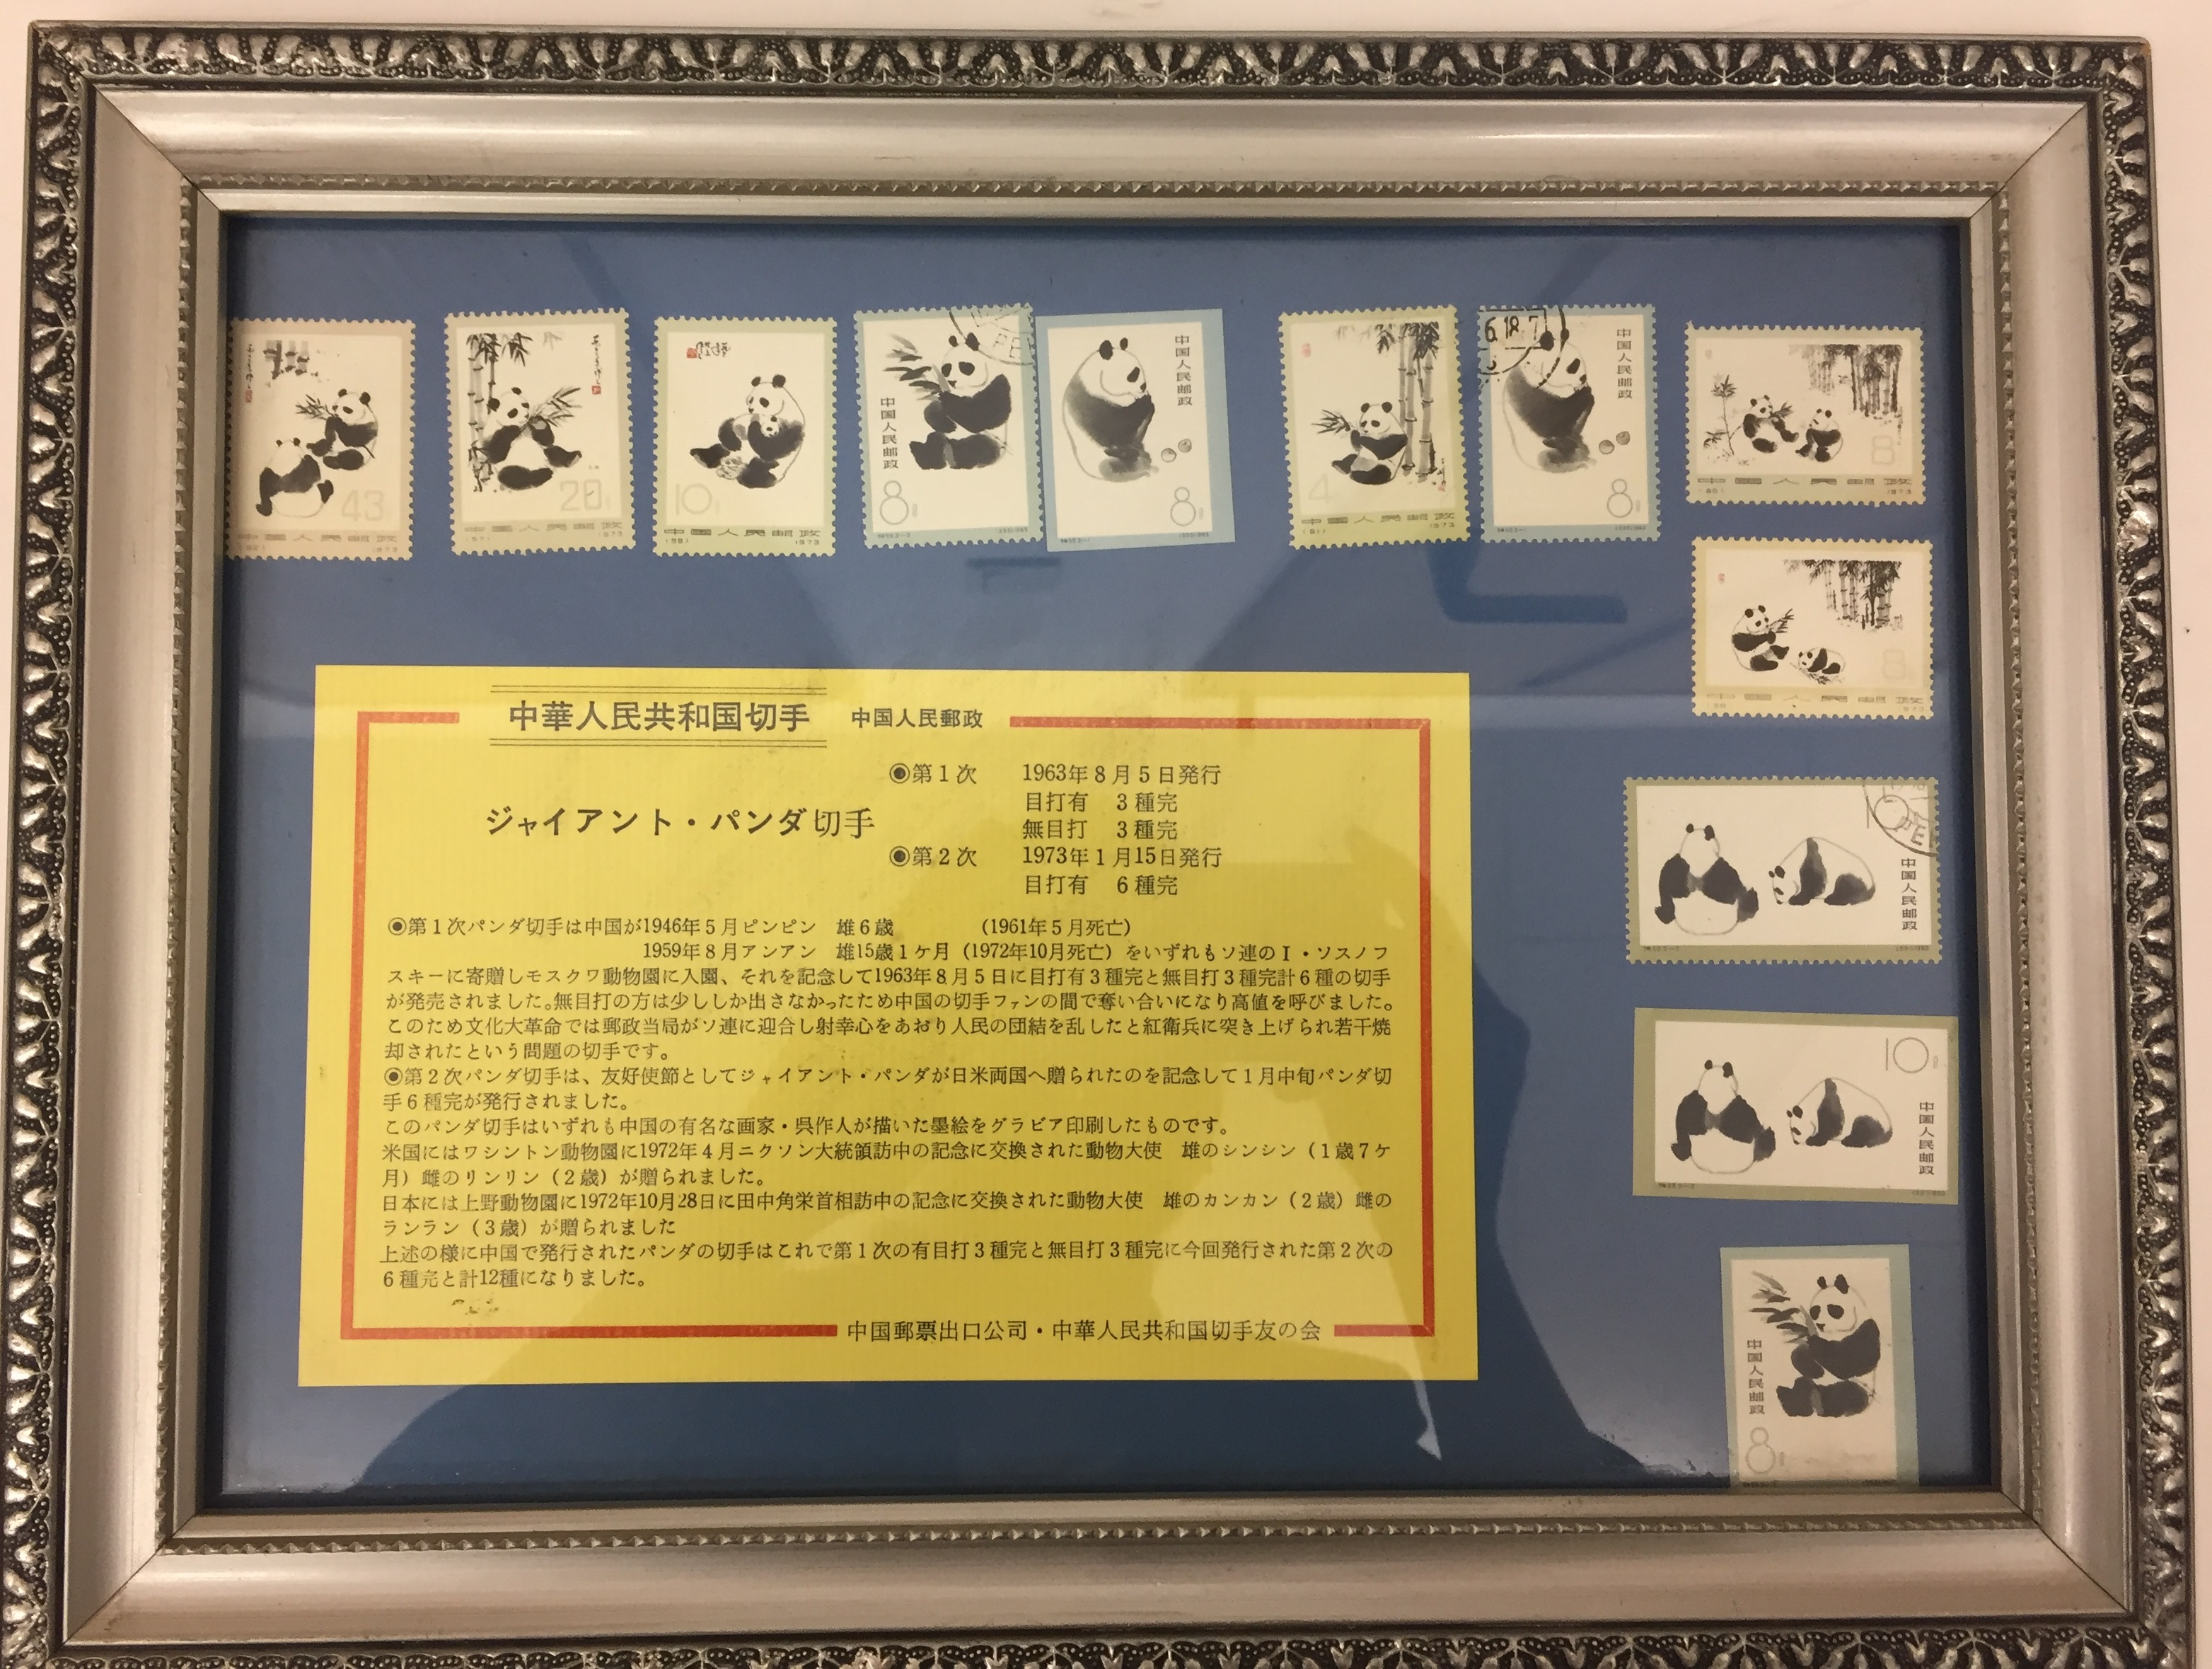 43
中国人民邮政
1973
20
中国人民邮政
1973
10
中国人民邮政
(58)
1973
中国人民邮政
8
中国人民邮政
8
4
中国人民邮政
(61)
1973
6.18.7
中国人民邮政
8
8
中国人民邮政
1973
8
中国人民邮政
中国人民邮政
10
中国人民邮政
中国人民邮政
8
中華人民共和国切手 中国人民郵政
ジャイアント・パンダ切手
◉第1次 1963年8月5日発行
目打有 3種完
無目打 3種完
◉第2次 1973年1月15日発行
目打有 6種完
◉第1次パンダ切手は中国が1946年5月ピンピン 雄6歳 (1961年5月死亡)
1959年8月アンアン 雄15歳1ケ月(1972年10月死亡)をいずれもソ連のI・ソスノフ
スキーに寄贈しモスクワ動物園に入園、それを記念して1963年8月5日に目打有3種完と無目打3種完計6種の切手
が発売されました。無目打の方は少ししか出さなかったため中国の切手ファンの間で奪い合いになり高値を呼びました。
このため文化大革命では郵政当局がソ連に迎合し射幸心をあおり人民の団結を乱したと紅衛兵に突き上げられ若干焼
却されたという問題の切手です。
◉第2次パンダ切手は、友好使節としてジャイアント・パンダが日米両国へ贈られたのを記念して1月中旬パンダ切
手6種完が発行されました。
このパンダ切手はいずれも中国の有名な画家・呉作人が描いた墨絵をグラビア印刷したものです。
米国にはワシントン動物園に1972年4月ニクソン大統領訪中の記念に交換された動物大使 雄のシンシン(1歳7ケ
月)雌のリンリン(2歳)が贈られました。
日本には上野動物園に1972年10月28日に田中角栄首相訪中の記念に交換された動物大使 雄のカンカン(2歳)雌の
ランラン(3歳)が贈られました
上述の様に中国で発行されたパンダの切手はこれで第1次の有目打3種完と無目打3種完に今回発行された第2次の
6種完と計12種になりました。
中国郵票出口公司・中華人民共和国切手友の会